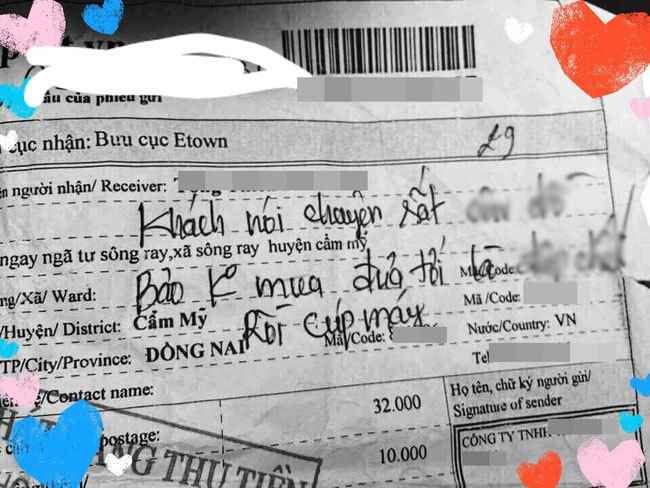 ấu của phiếu gửi
cục nhận: Bưu cục Etown
29
ên người nhận/ Receiver:
Khách nói chuyện rất
ngay ngã tư sông ray,xã sông ray huyện cẩm mỹ
Bảo K mua đưa tôi là
Mã/Code:
ng/Xã/ Ward:
Mã /Code:
/Huyện/ District: Cẩm Mỹ
Rồi cúp máy
Mã/Code:
Nước/Country: VN
TP/City/Province: ĐỒNG NAI
Tel
/Contact name:
32.000
Họ tên, chữ ký người gửi/
Signature of sender
postage:
10.000
CÔNG TY TNHH
NG THU TIỀN